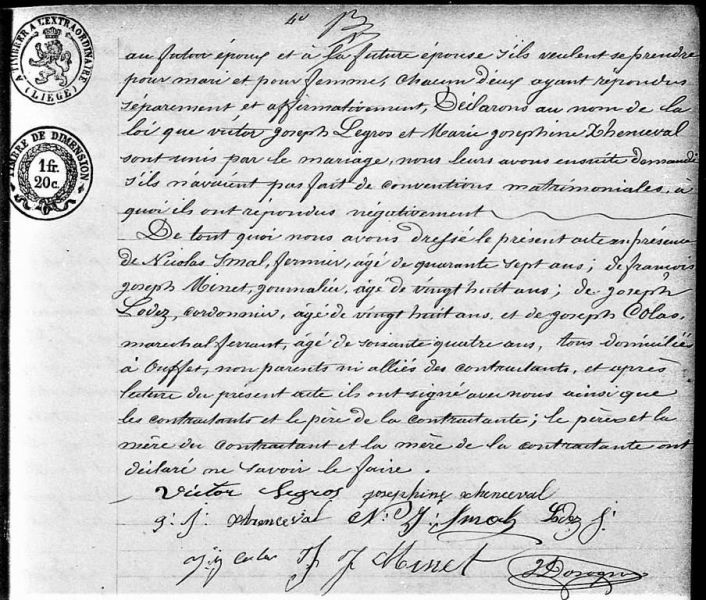 4e
A TIMBRER A L'EXTRAORDINAIRE
(LIÉGE)
TIMBRE DE DIMENSION
1 fr.
20 c.
au futur époux et à la future épouse s'ils veulent se prendre
pour mari et pour femme, chacun d'eux ayant répondus
séparement et affirmativement, Déclarons au nom de la
loi que victor Joseph Legros et Marie Josephine Xhenceval
sont unis par le mariage, nous leurs avons ensuite demandé
s'ils n'avaient pas fait de conventions matrimoniales, à
quoi ils ont répondus négativement
De tout quoi nous avons dressé le présent acte en présence
de Nicolas Smal, fermier, âgé de quarante sept ans; de françois
joseph Minet, journalier, âgé de vingt huit ans; de joseph
Lodez, cordonnier, âgé de vingt huit ans, et de joseph Colas,
marechal ferrant, âgé de soixante quatre ans, tous domiciliés
à Ouffet, non parents ni alliés des contractants, et après
lecture du présent acte ils ont signé avec nous ainsi que
les contractants et le père de la contractante; le père et la
mère du contractant et la mère de la contractante ont
déclaré ne savoir le faire.
Victor Legros josephine xhenceval
g. j. xhenceval N. J. Smal Lodez j.
colas F J Minet